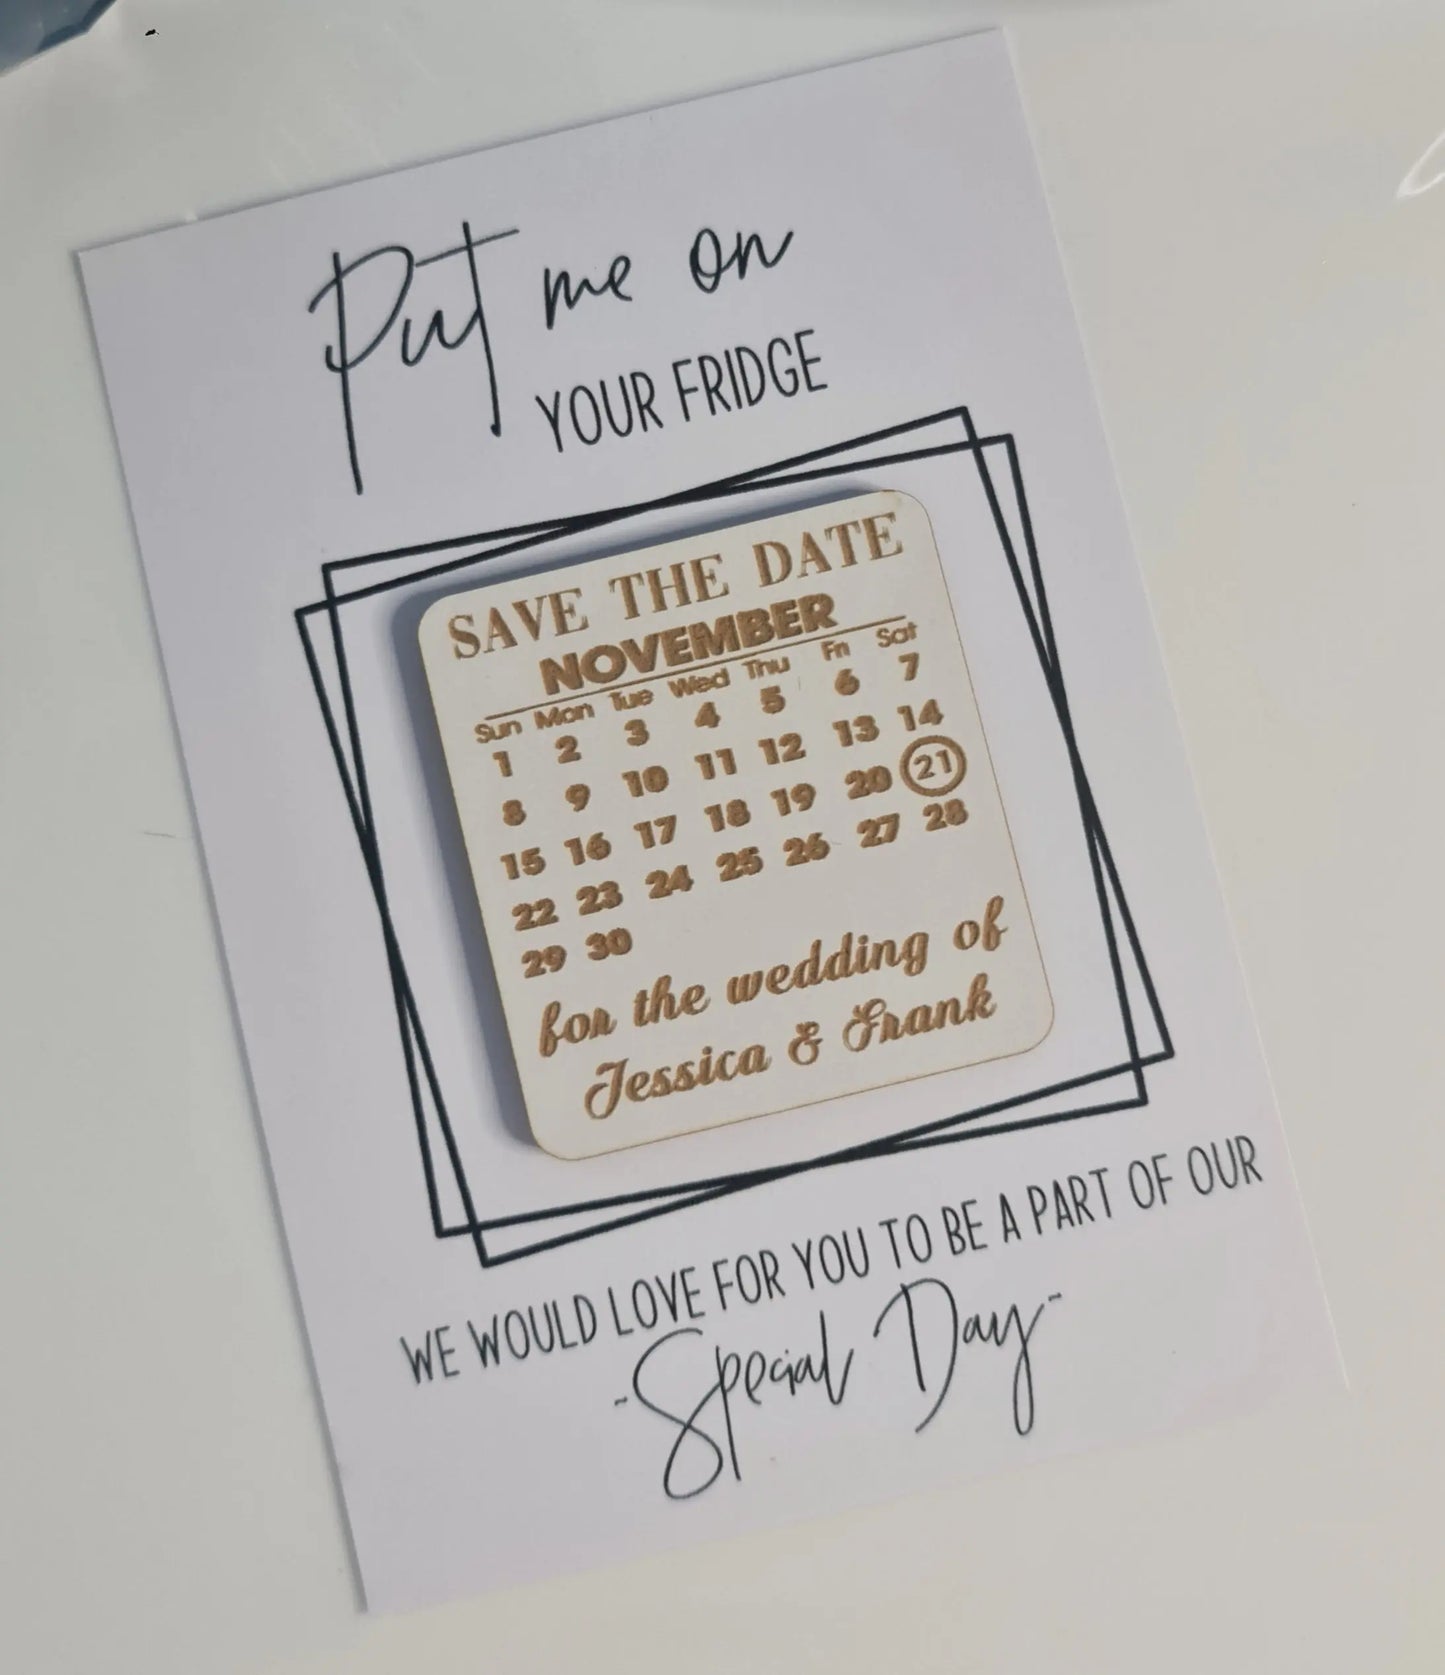 Put me on
YOUR FRIDGE
SAVE THE DATE
NOVEMBER
Sun Mon Tue Wed Thu Fri Sat
1 2 3 4 5 6 7
8 9 10 11 12 13 14
15 16 17 18 19 20 21
22 23 24 25 26 27 28
29 30
for the wedding of
Jessica & Frank
WE WOULD LOVE FOR YOU TO BE A PART OF OUR
-Special Day-